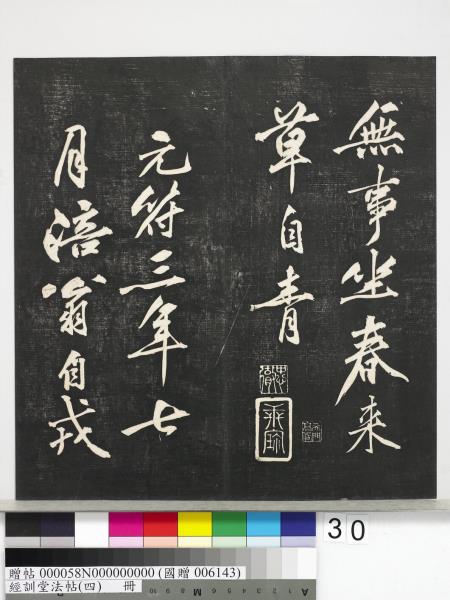 無事坐春来
草自青
元符三年七
月涪翁自戎
30
贈帖 000058N000000000 (國贈 006143)
經訓堂法帖(四) 冊